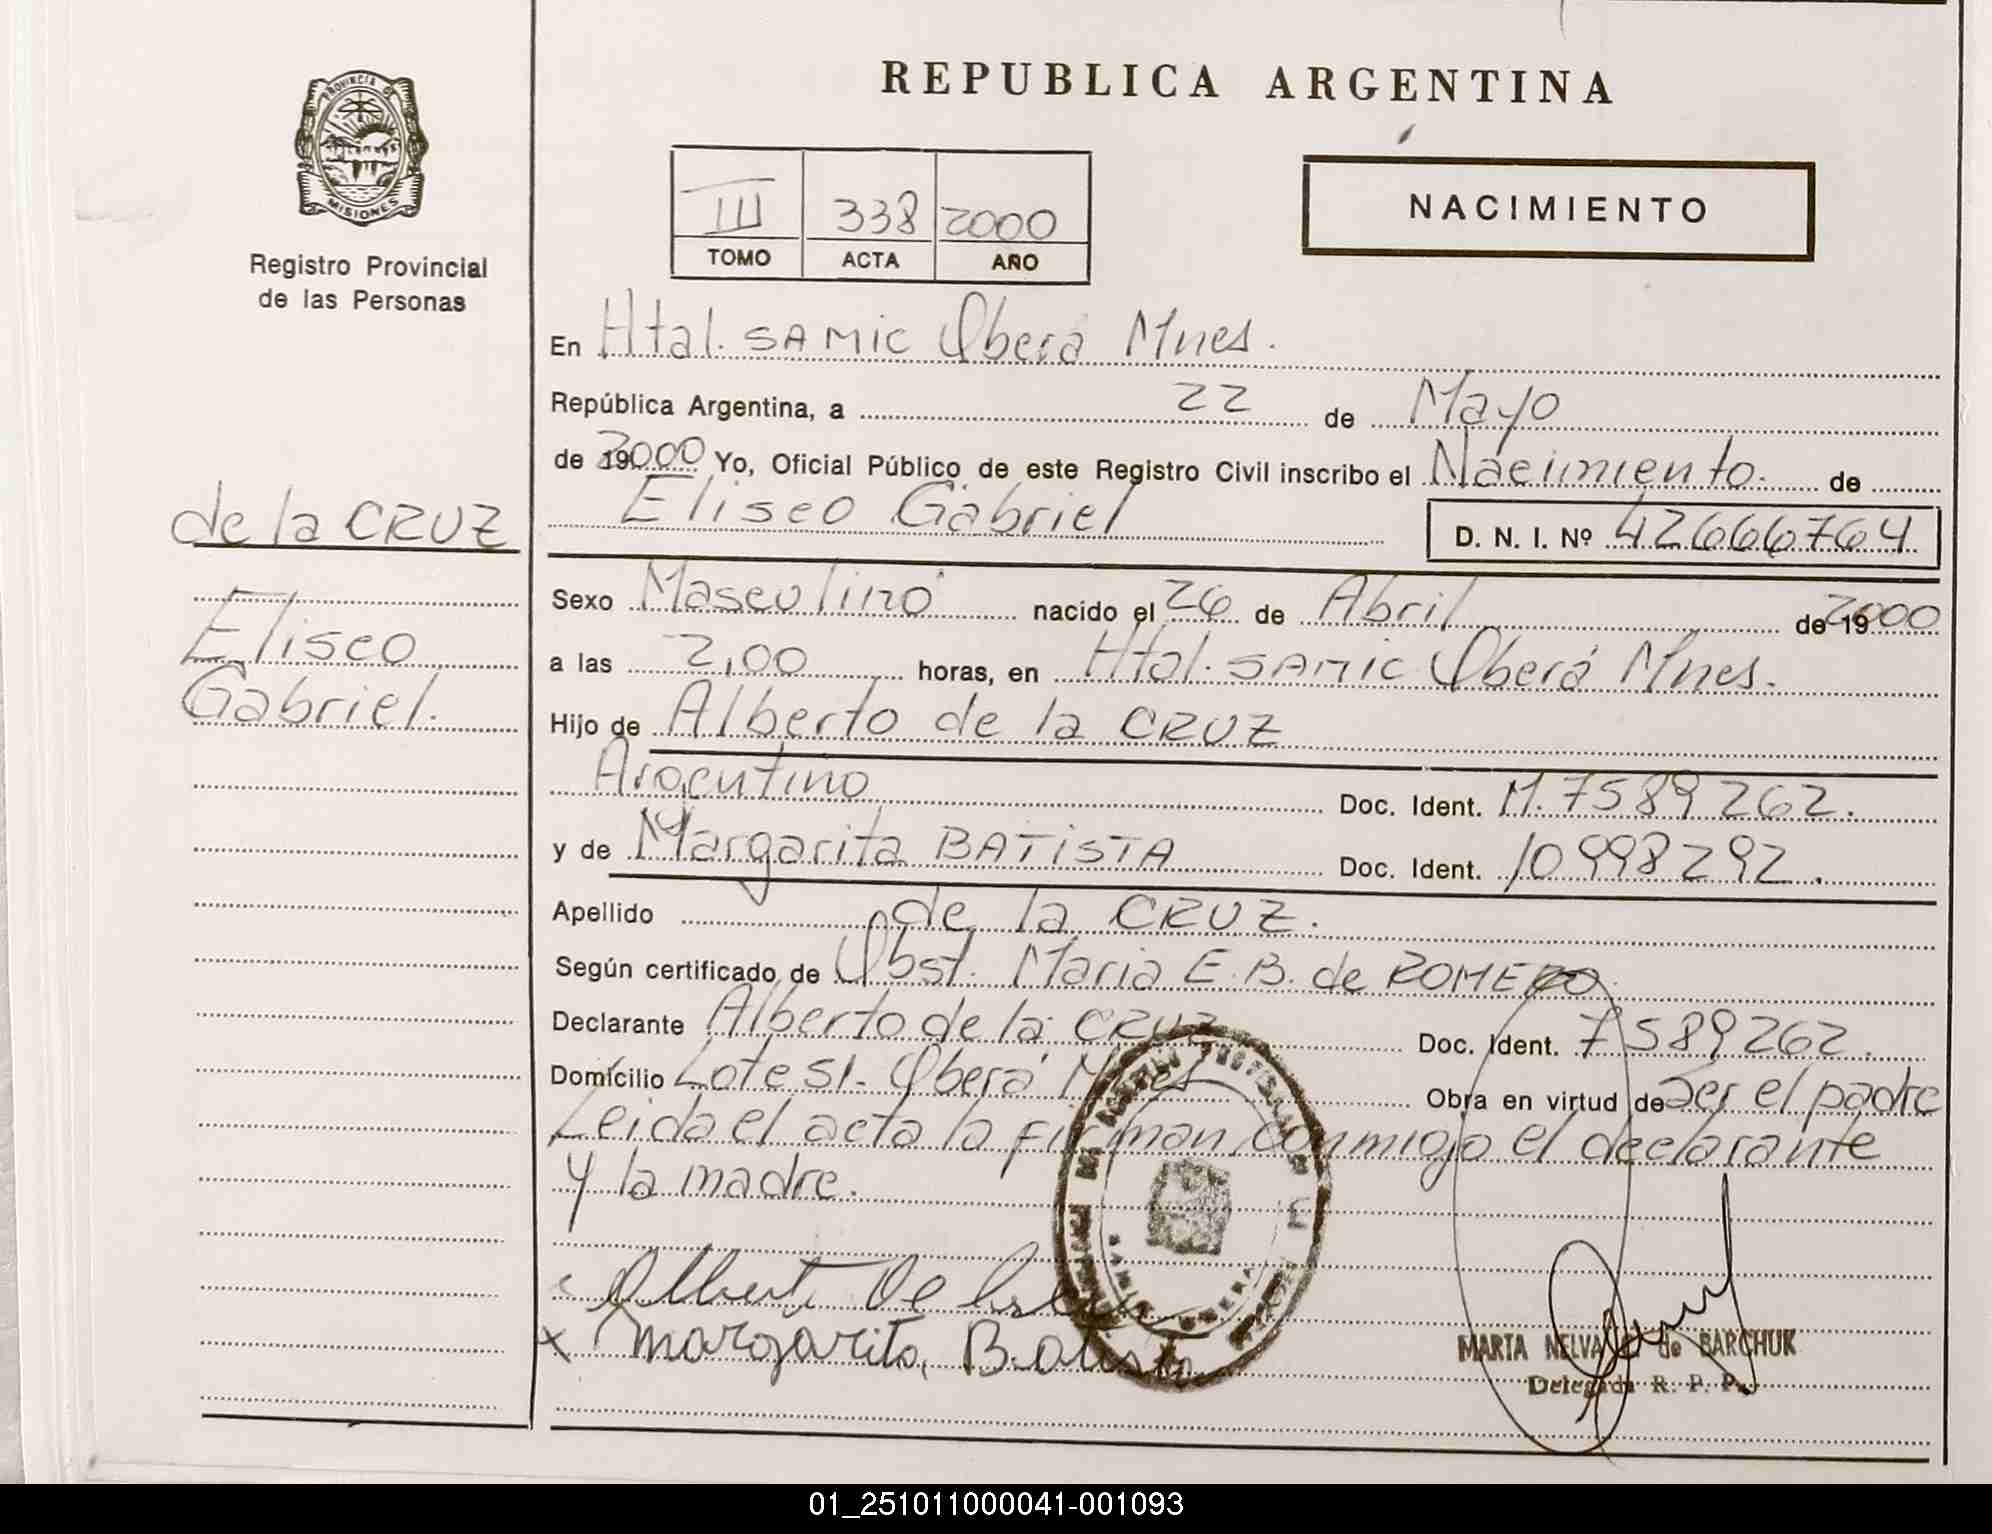 PROVINCIA DE
MISIONES
Registro Provincial
de las Personas
de la CRUZ
Eliseo
Gabriel.
REPUBLICA ARGENTINA
III 338 2000
TOMO ACTA AÑO
NACIMIENTO
En Htal. SAMIC Oberá Mnes.
República Argentina, a 22 de Mayo
de 19 2000 Yo, Oficial Público de este Registro Civil inscribo el Nacimiento. de
Eliseo Gabriel
D. N. I. Nº 42666764
Sexo Masculino nacido el 26 de Abril de 19 2000
a las 2,00 horas, en Htal. SAMIC Oberá Mnes.
Hijo de Alberto de la CRUZ
Argentino Doc. Ident. M. 7589262.
y de Margarita BATISTA Doc. Ident. 10998292.
Apellido de la CRUZ.
Según certificado de Obst. Maria E. B. de ROMERO
Declarante Alberto de la CRUZ Doc. Ident. 7589262.
Domicilio Lote 51- Oberá Mnes Obra en virtud de Ser el padre
Leida el acta la firman conmigo el declarante
y la madre.
Alberto De la Cruz
x Margarita, Batista
MARTA NELVA de BARCHUK
Delegada R. P. P.
01_251011000041-001093